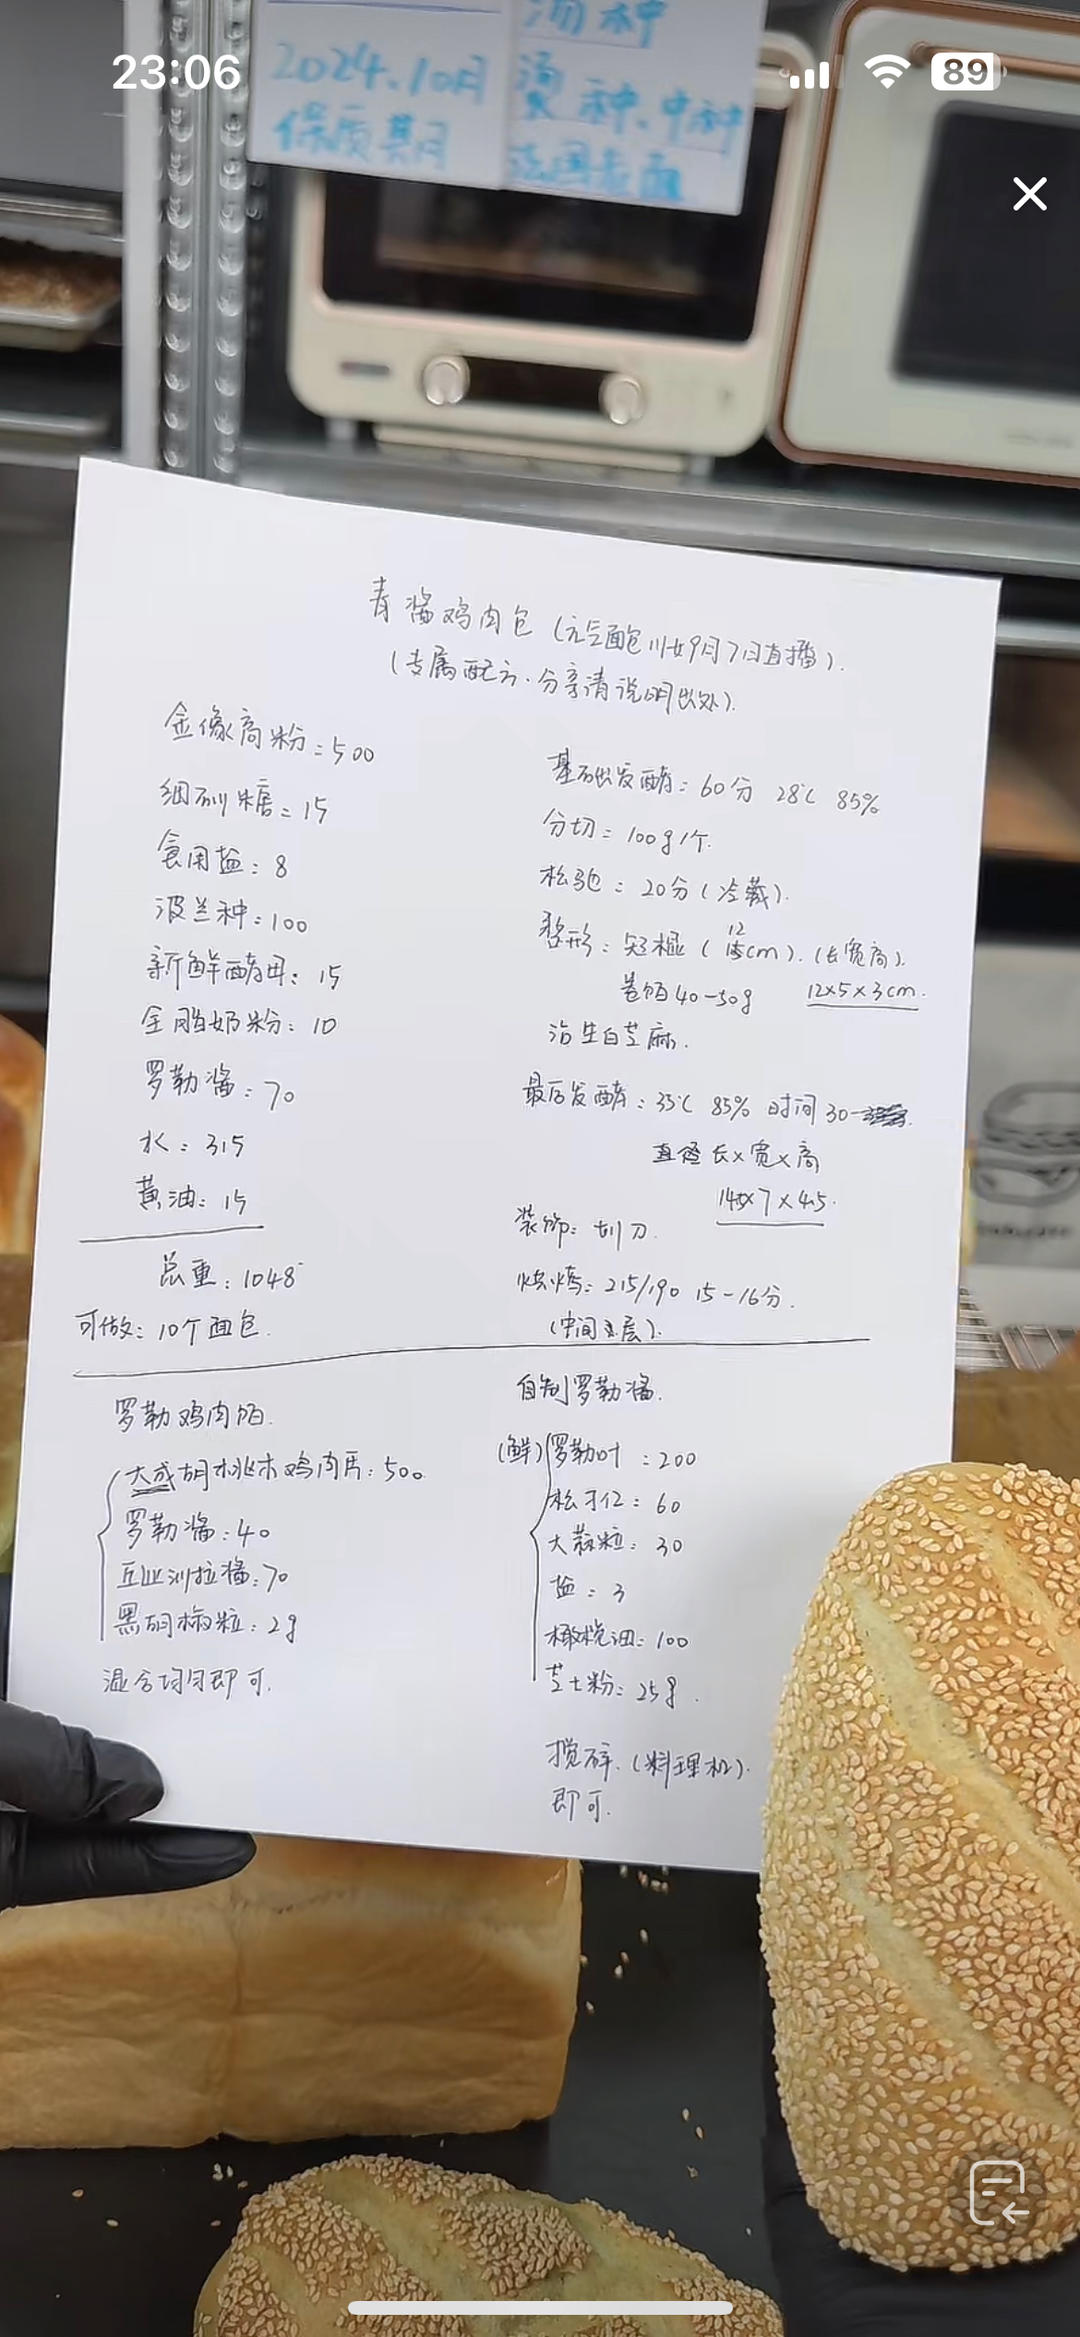 23:06
89
汤种
2024.10月
保质期
汤种、中种
法国老面
青酱鸡肉包(元气面包川女9月7日直播).
(专属配方、分享请说明出处).
金像高粉:500
细砂糖:15
食用盐:8
波兰种:100
新鲜酵母:15
全脂奶粉:10
罗勒酱:70
水:315
黄油:15
总重:1048
可做:10个面包.
基础发酵:60分 28℃ 85%
分切:100g/个.
松弛:20分(冷藏).
整形:短棍(12cm).(长宽高).
卷馅40-50g 12x5x3cm.
沾生白芝麻.
最后发酵:35℃ 85% 时间30-
直径长x宽x高
14x7x4.5.
装饰:划刀.
烘烤:215/190 15-16分.
(中间层).
罗勒鸡肉馅.
大成胡桃木鸡肉片:500
罗勒酱:40
豆亚沙拉酱:70
黑胡椒粒:2g
混合均匀即可.
自制罗勒酱.
(鲜)罗勒叶:200
松子仁:60
大蒜粒:30
盐:3
橄榄油:100
芝士粉:25g.
搅碎.(料理机).
即可.